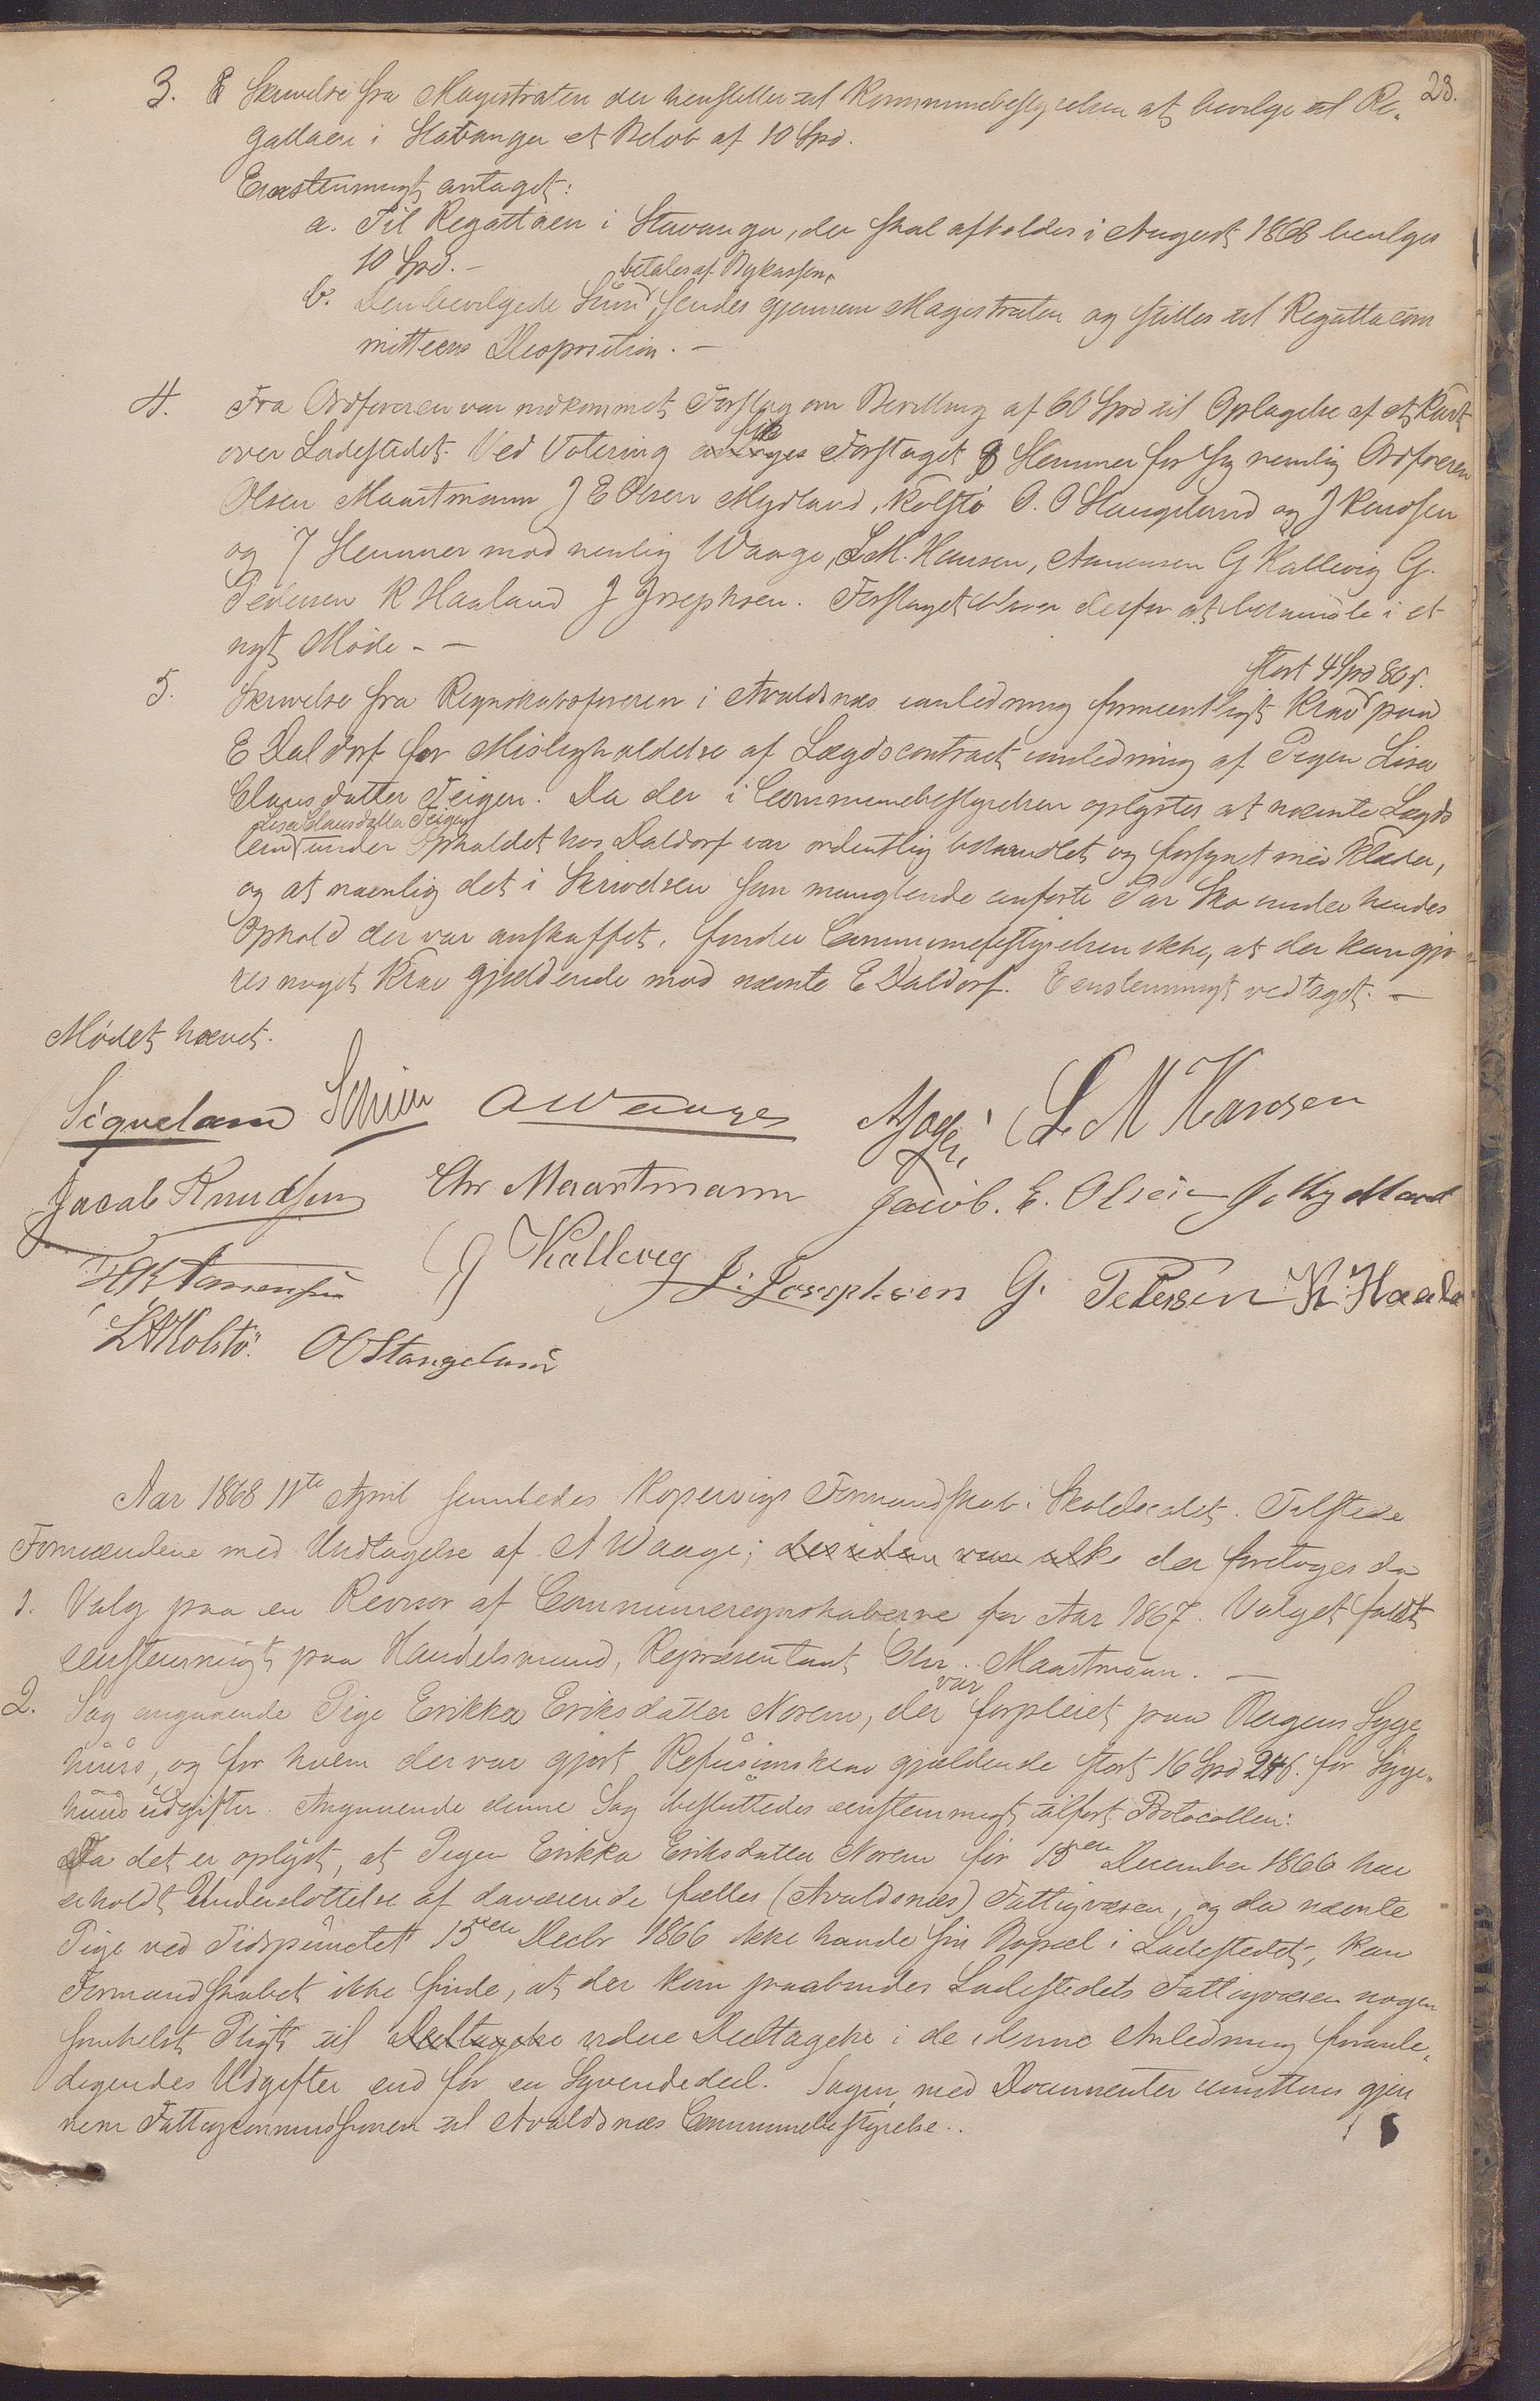 23.
3. Skrivelse fra Magistraten der henstiller til Kommunebestyrelsen at bevilge til Re-
gattaen i Stavanger et Beløb af 10 Spd.
Eenstemmigt antaget:
a. Til Regattaen i Stavanger, der skal afholdes i August 1868 bevilges
10 Spd. —
betales af Bykassen,
b. Den bevilgede Sum sendes gjennem Magistraten og stilles til Regattacom
mitteens Disposition. —
4. Fra Ordføreren var indkommet Forslag om Bevilling af 60 Spd til Optagelse af et Kart
fik
over Ladestedet. Ved Votering Forslaget 8 Stemmer for sig nemlig Ordføreren
Olsen Maartmann J E Olsen Mydland, Kolstö O. O Stangeland og J Knudsen
og 7 Stemmer mod nemlig Waage, L M. Hansen, Amensen G Kallevig G.
Pedersen K Haaland J Josephsen. Forslaget bliver derfor at behandle i et
nyt Møde. — —
stort 4 Spd 80 s.
5. Skrivelse fra Regnskabsføreren i Avaldsnæs anledning formeentligt Krav paa
E Daldorf for Misligholdelse af Lægdscontract anledning af Pigen Lisa
Clausdatter Teigen. Da der i Communebestyrelsen oplystes at nævnte Lægds
Lisa Clausdatter Teigen
lem under Opholdet hos Daldorf var ordentlig behandlet og forsynet med Klæder,
og at nævnlig det i Skrivelsen som manglende anførte Par Sko under hendes
Ophold der var anskaffet, finder Communebestyrelsen ikke, at der kan gjø-
res noget Krav gjældende mod nævnte E Daldorf. Eenstemmigt vedtaget. —
Mødet hævet.
Siqveland A Waage L M Hansen
Jacob Knudsen Chr Maartmann Jacob. E. Olsen J. Mydland
G Kallevig J. Josephsen G. Petersen K. Haala
Kolstö. O O Stangeland
Aar 1868 11te April samledes Kopervigs Formandskab i Skolelocalet. Tilstede
Formændene med Undtagelse af A Waage; der foretoges da
1. Valg paa en Revisor af Communeregnskaberne for Aar 1867. Valget faldt
eenstemmigt paa Handelsmand, Repræsentant Chr. Maartmann. —
var
2. Sag angaaende Pige Erikka Eriksdatter Norem, der forpleiet paa Bergens Syge
huus, og for hvem der var gjort Refusionskrav gjældende stort 16 Spd 24 s. for Syge-
huusudgifter. Angaaende denne Sag besluttedes eenstemmigt tilført Protocollen:
Da det er oplyst, at Pigen Erikka Eriksdatter Norem før 15en December 1866 har
erholdt Understøttelse af daværende fælles (Avaldsnæs) Fattigvæsen, og da nævnte
Pige ved Tidspunctet 15en Decbr 1866 ikke havde sin Bopæl i Ladestedet, kan
Formandskabet ikke finde, at der kan paabyrdes Ladestedets Fattigvæsen nogen
somhelst Pligt til Deeltagelse videre Deeltagelse i de i denne Anledning foranle-
digendes Udgifter end for en Syvendedeel. Sagen med Documenter remitteres gjen
nem Fattigcommissionen til Avaldsnæs Communebestyrelse..